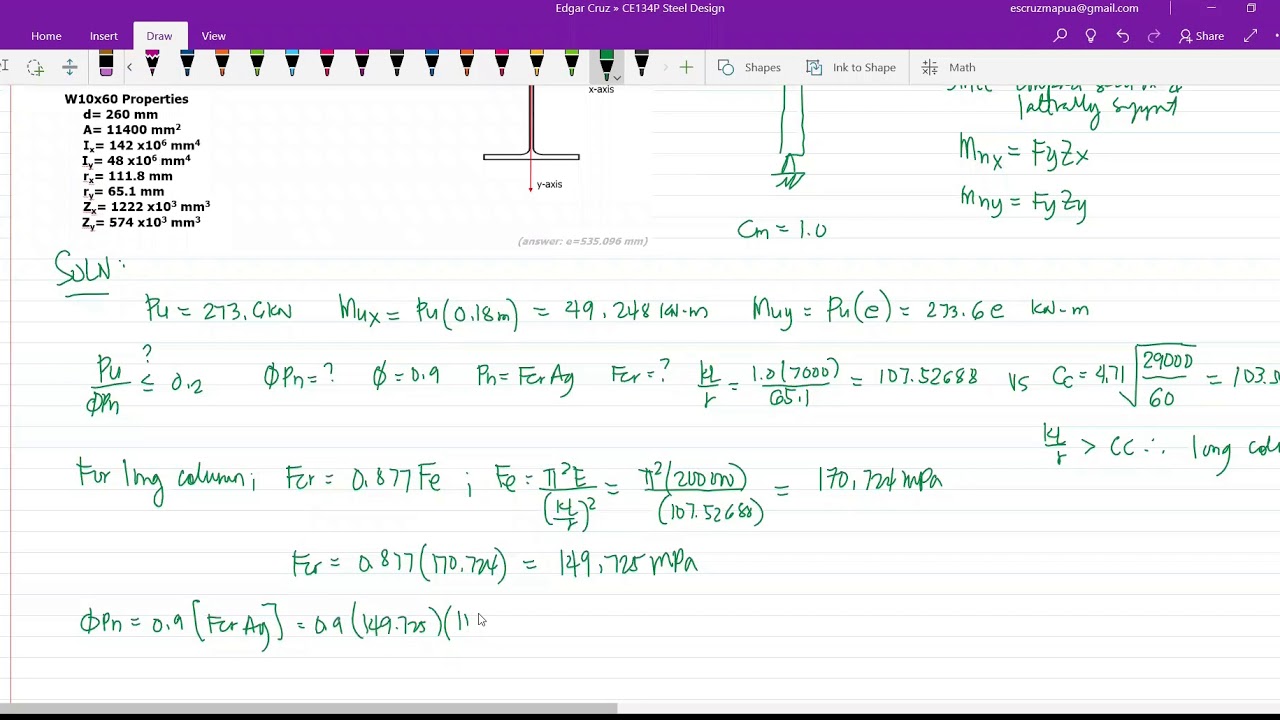 Edgar Cruz » CE134P Steel Design
escruzmapua@gmail.com
Home Insert Draw View
Share
Shapes Ink to Shape Math
W10x60 Properties
d= 260 mm
A= 11400 mm²
Iₓ= 142 x10⁶ mm⁴
Iᵧ= 48 x10⁶ mm⁴
rₓ= 111.8 mm
rᵧ= 65.1 mm
Zₓ= 1222 x10³ mm³
Zᵧ= 574 x10³ mm³
x-axis
y-axis
(answer: e=535.096 mm)
Cm = 1.0
laterally support
Mnx = FyZx
Mny = FyZy
SOLN:
Pu = 273.6kN Mux = Pu(0.18m) = 49.248 kN-m Muy = Pu(e) = 273.6e kN-m
Pu/ϕPn ≤? 0.2 ϕPn = ? ϕ = 0.9 Pn = FcrAg Fcr = ? kl/r = 1.0(7000)/65.1 = 107.52688 vs Cc = 4.71√(29000/60) = 103.5
kl/r > Cc ∴ long colu
For long column; Fcr = 0.877Fe ; Fe = π²E/(kl/r)² = π²(200000)/(107.52688) = 170.724 mPa
Fcr = 0.877(170.724) = 149.725 mPa
ϕPn = 0.9[FcrAg] = 0.9(149.725)(11